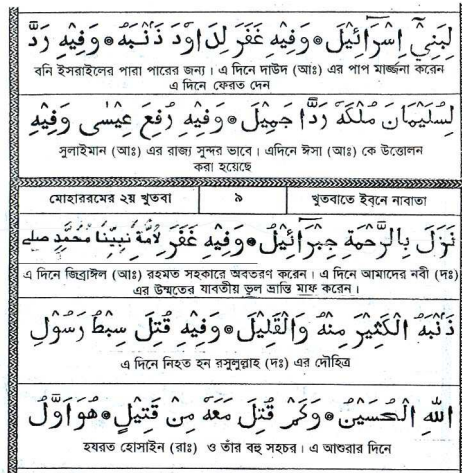 لِبَنِيْٓ اِسْرَآئِيْلَ ۞ وَفِيْهِ غَفَرَ لِدَاوٗدَ ذَنْبَهٗ ۞ وَفِيْهِ رَدَّ
বনি ইসরাইলের পারা পারের জন্য। এ দিনে দাউদ (আঃ) এর পাপ মার্জ্জনা করেন
এ দিনে ফেরত দেন
لِسُلَيْمَانَ مُلْكَهٗ رَدًّا جَمِيْلَ ۞ وَفِيْهِ رُفِعَ عِيْسٰى وَفِيْهِ
সুলাইমান (আঃ) এর রাজ্য সুন্দর ভাবে। এদিনে ঈসা (আঃ) কে উত্তোলন
করা হয়েছে
মোহাররমের ২য় খুতবা ৯ খুতবাতে ইবনে নাবাতা
نَزَلَ بِالرَّحْمَةِ جِبْرَآئِيْلُ ۞ وَفِيْهِ غَفَرَ لِاُمَّةِ نَبِيِّنَا مُحَمَّدٍ صلے
এ দিনে জিব্রাঈল (আঃ) রহমত সহকারে অবতরণ করেন। এ দিনে আমাদের নবী (দঃ)
এর উম্মতের যাবতীয় ভুল ভ্রান্তি মাফ করেন।
ذَنْبَهُ الْكَثِيْرَ مِنْهُ وَالْقَلِيْلَ ۞ وَفِيْهِ قُتِلَ سِبْطُ رَسُوْلِ
এ দিনে নিহত হন রসুলুল্লাহ (দঃ) এর দৌহিত্র
اللّٰهِ الْحُسَيْنُ ۞ وَكَمْ قُتِلَ مَعَهٗ مِنْ قَتِيْلٍ ۞ هُوَ اَوَّلُ
হযরত হোসাইন (রাঃ) ও তাঁর বহু সহচর। এ আশুরার দিনে